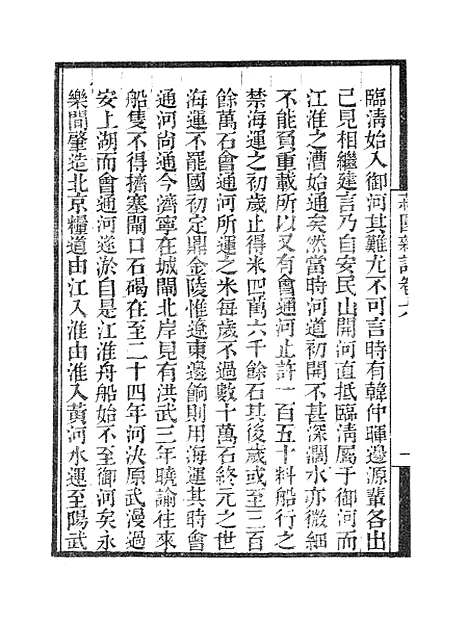 臨淸始入御河其難尤不可言時有韓仲暉邊源輩各出
己見相繼建言乃自安民山開河直抵臨淸屬于御河而
江淮之漕始通矣然當時河道初開不甚深濶水亦微細
不能負重載所以又有會通河止許一百五十料船行之
禁海運之初歲止得米四萬六千餘石其後歲或至三百
餘萬石會通河所運之米每歲不過數十萬石終元之世
海運不罷國初定鼎金陵惟遼東邊餉則用海運其時會
通河尙通今濟寧在城閘北岸見有洪武三年曉諭往來
船隻不得擠塞閘口石碣在至二十四年河決原武漫過
安上湖而會通河遂淤自是江淮舟船始不至御河矣永
樂間肇造北京糧道由江入淮由淮入黃河水運至陽武